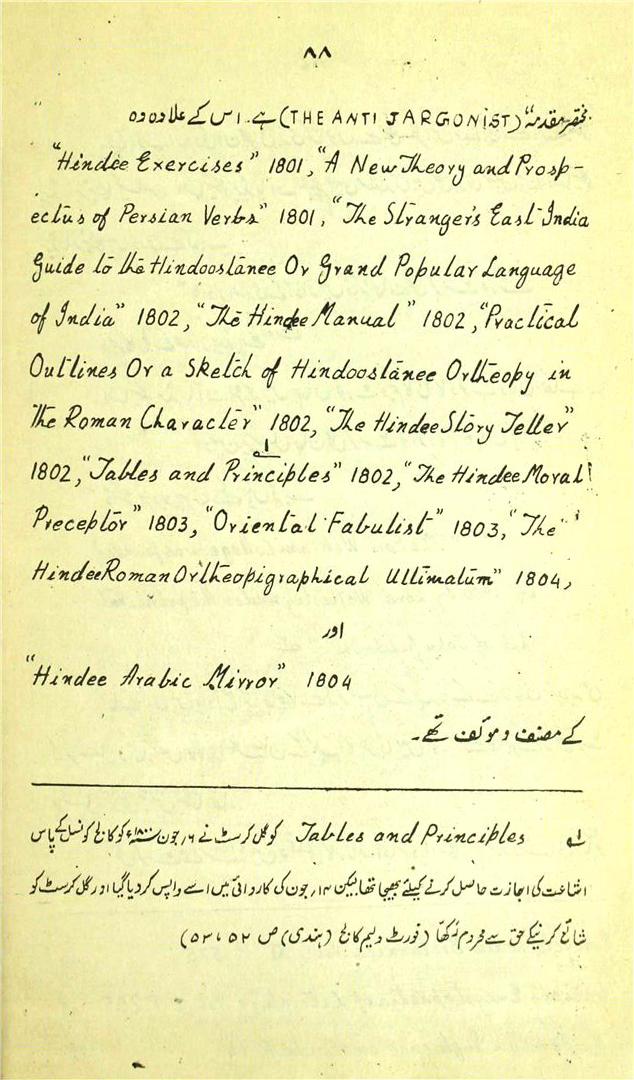 ۸۸
مختصر مقدمہ" (THE ANTI JARGONIST) ہے۔ اس کے علاوہ وہ
"Hindee Exercises" 1801, "A New Theory and Prosp-
ectus of Persian Verbs" 1801, "The Stranger's East India
Guide to the Hindoostanee Or Grand Popular Language
of India" 1802, "The Hindee Manual" 1802, "Practical
Outlines Or a Sketch of Hindoostanee Ortheopy in
The Roman Character" 1802, "The Hindee Story Teller"
1802, "Tables and Principles" 1802, "The Hindee Moral
Preceptor" 1803, "Oriental Fabulist" 1803, "The
Hindee Roman Ortheopigraphical Ultimatum" 1804,
اور
"Hindee Arabic Mirror" 1804
کے مصنف و مولف تھے۔
۱ے Tables and Principles کو گل کرسٹ نے ۶؍ جون کو کالج کونسل کے پاس
اشاعت کی اجازت حاصل کرنے کیلئے بھیجا تھا لیکن ۱۴؍ جون کی کاروائی میں اسے واپس کر دیا گیا اور گل کرسٹ کو
شائع کرنیکے حق سے محروم رکھا (فورٹ ولیم کالج (ہندی) ص ۵۲، ۵۳)